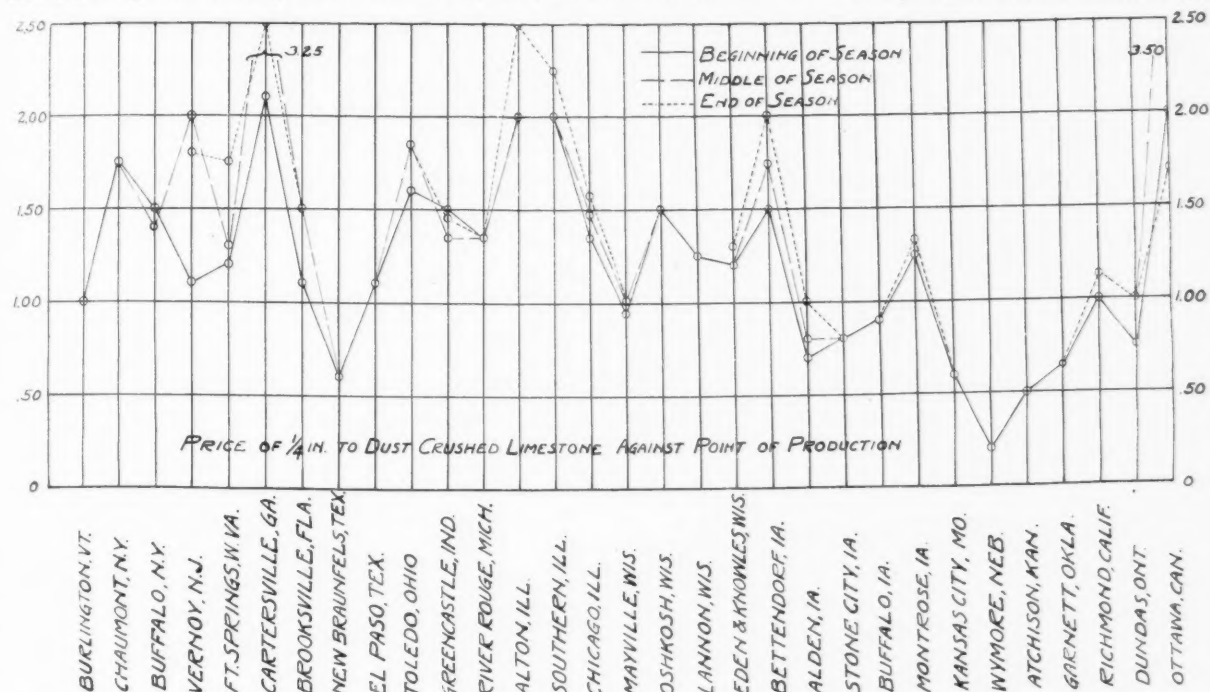 2.50
2.00
1.50
1.00
.50
0
3.25
BEGINNING OF SEASON
MIDDLE OF SEASON
END OF SEASON
3.50
2.50
2.00
1.50
1.00
.50
0
PRICE OF 1/4 IN. TO DUST CRUSHED LIMESTONE AGAINST POINT OF PRODUCTION
BURLINGTON, VT.
CHAUMONT, N.Y.
BUFFALO, N.Y.
VERNOY, N.J.
FT. SPRINGS, W. VA.
CARTERSVILLE, GA.
BROOKSVILLE, FLA.
NEW BRAUNFELS, TEX.
EL PASO, TEX.
TOLEDO, OHIO
GREENCASTLE, IND.
RIVER ROUGE, MICH.
ALTON, ILL.
SOUTHERN, ILL.
CHICAGO, ILL.
MAYVILLE, WIS.
OSHKOSH, WIS.
LANNON, WIS.
EDEN & KNOWLES, WIS.
BETTENDORF, IA.
ALDEN, IA.
STONE CITY, IA.
BUFFALO, IA.
MONTROSE, IA.
KANSAS CITY, MO.
WYMORE, NEB.
ATCHISON, KAN.
GARNETT, OKLA.
RICHMOND, CALIF.
DUNDAS, ONT.
OTTAWA, CAN.